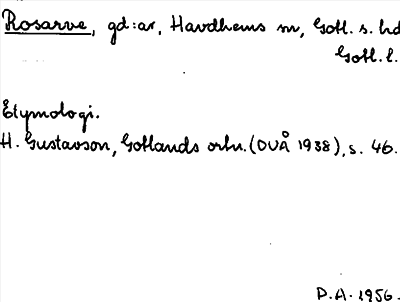 Rosarve, gd:ar, Havdhems sn, Gotl. s. hd
Gotl. l.
Etymologi.
H. Gustavson, Gotlands ortn. (OUÅ 1938), s. 46.
P.A. 1956.